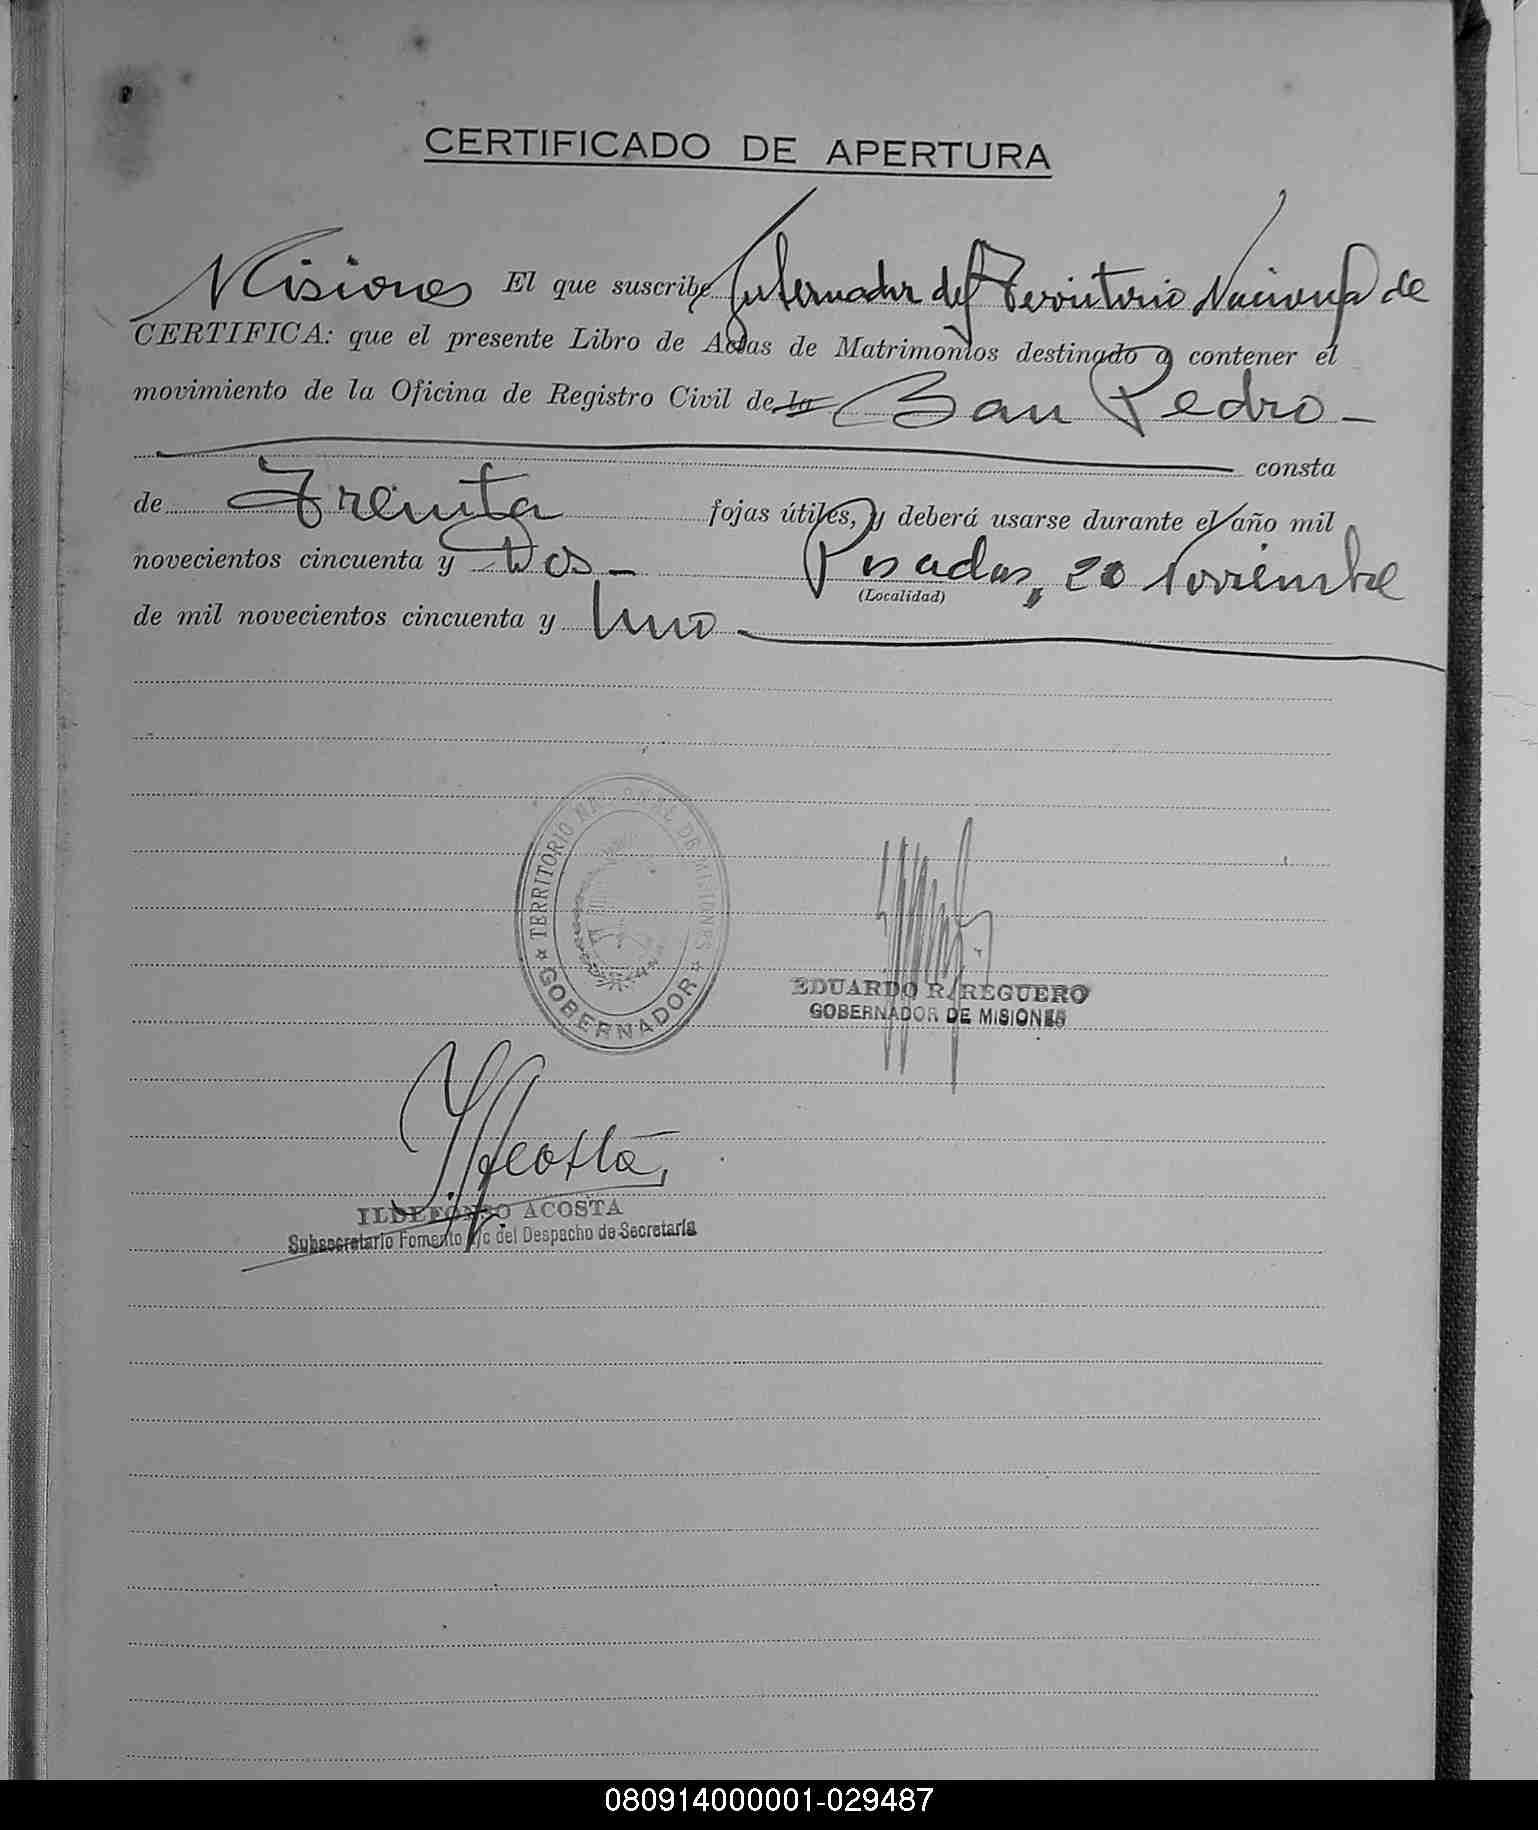 CERTIFICADO DE APERTURA
Misiones El que suscribe Gobernador del Territorio Nacional de
CERTIFICA: que el presente Libro de Actas de Matrimonios destinado a contener el
movimiento de la Oficina de Registro Civil de la San Pedro —
consta
de Treinta fojas útiles, y deberá usarse durante el año mil
novecientos cincuenta y Dos — Posadas, 20 Noviembre
(Localidad)
de mil novecientos cincuenta y Uno
TERRITORIO NACIONAL DE MISIONES
★ GOBERNADOR ★
EDUARDO R. REGUERO
GOBERNADOR DE MISIONES
I. Acosta
ILDEFONSO ACOSTA
Subsecretario Fomento a/c del Despacho de Secretaría
080914000001-029487